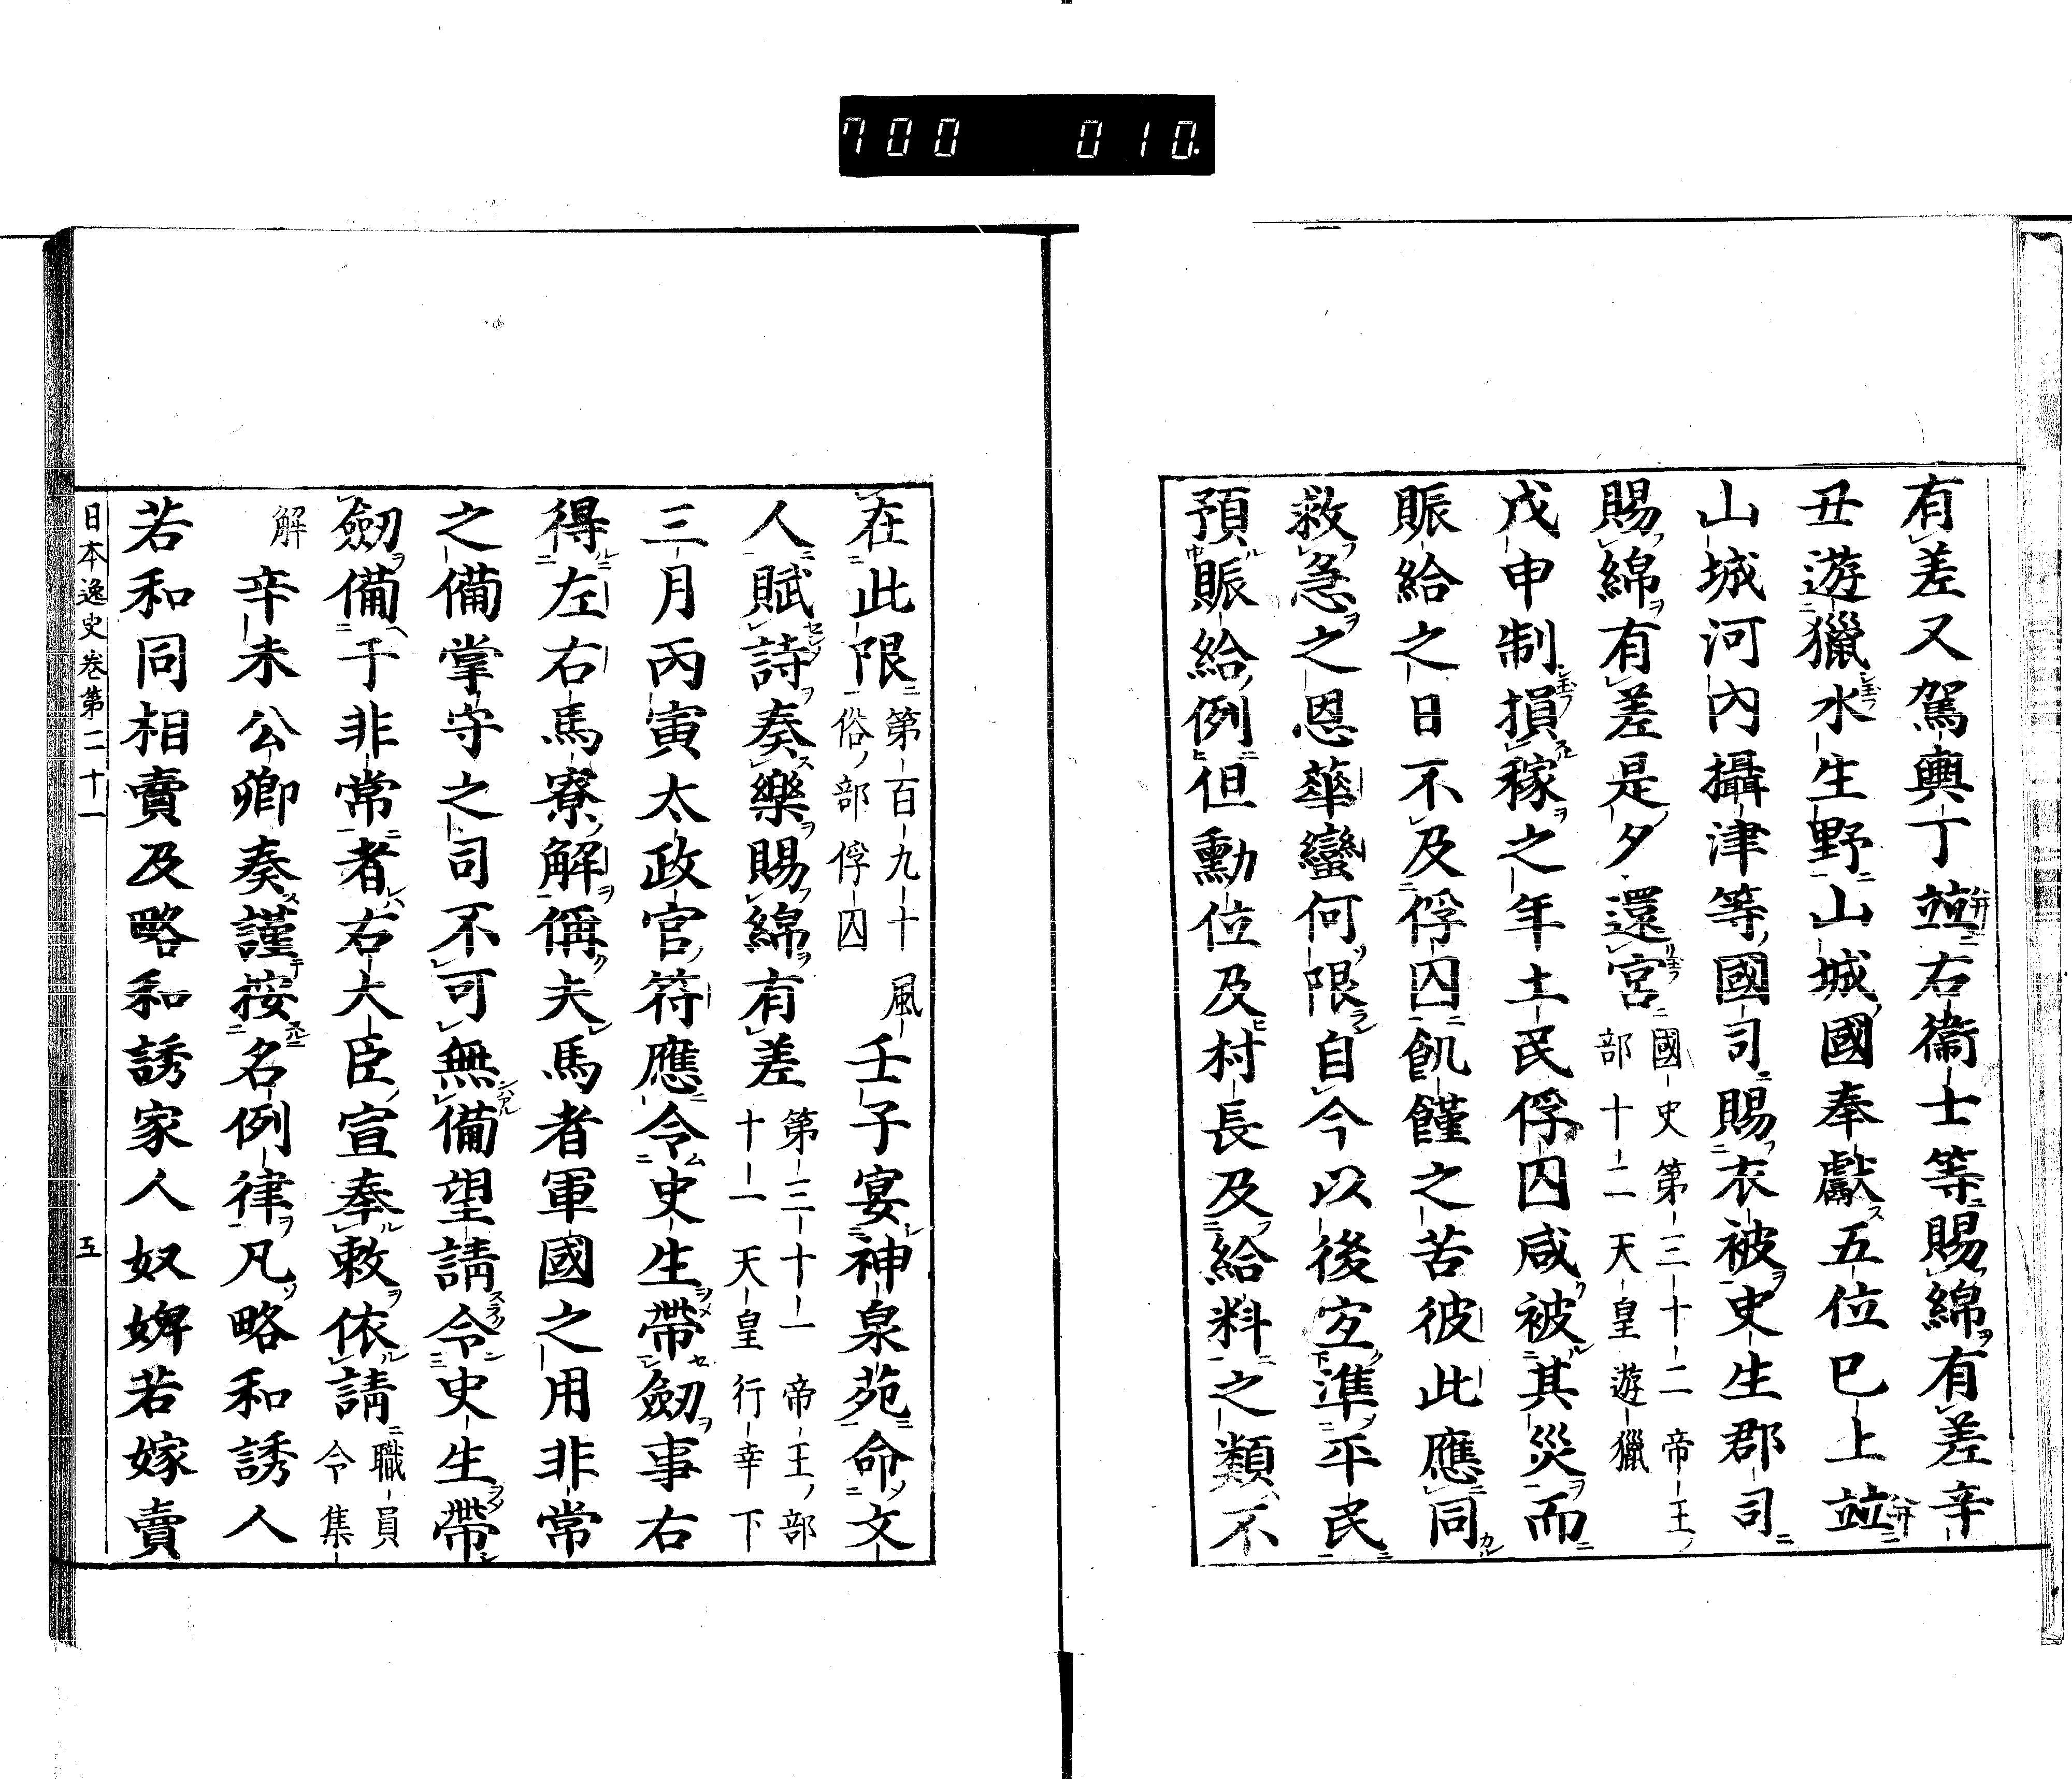 700 010.
有差又駕輿丁竝右衞士等賜綿有差辛
丑遊獵水生野山城國奉獻五位已上竝
山城河内攝津等國司賜衣被史生郡司
賜綿有差是夕還宮國史第三十二帝王
部十二天皇遊獵
戊申制損稼之年土民俘囚咸被其災而
賑給之日不及俘囚飢饉之苦彼此應同
救急之恩華蠻何限自今以後宜準平民
預賑給例但勳位及村長及給料之類不
在此限第百九十風
俗部俘囚
壬子宴神泉苑命文
人賦詩奏樂賜綿有差第三十一帝王部
十一天皇行幸下
三月丙寅太政官符應令史生帶劒事右
得左右馬寮解偁夫馬者軍國之用非常
之備掌守之司不可無備望請令史生帶
劒備于非常者右大臣宣奉敕依請職員
令集
解
辛未公卿奏謹按名例律凡略和誘人
若和同相賣及略和誘家人奴婢若嫁賣
日本逸史卷第二十一
五